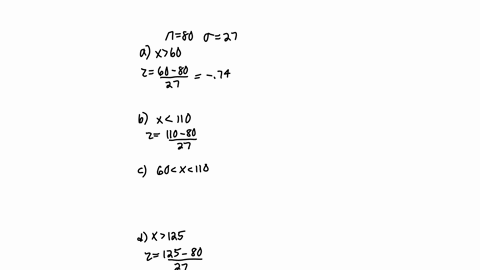 μ=80 σ=27
a) x>60
z = 60-80/27 = -.74
b) x < 110
z = 110-80/27
c) 60<x<110
d) x > 125
z = 125-80/27